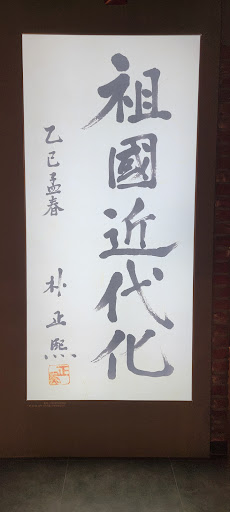 祖國近代化
乙巳孟春
朴正熙